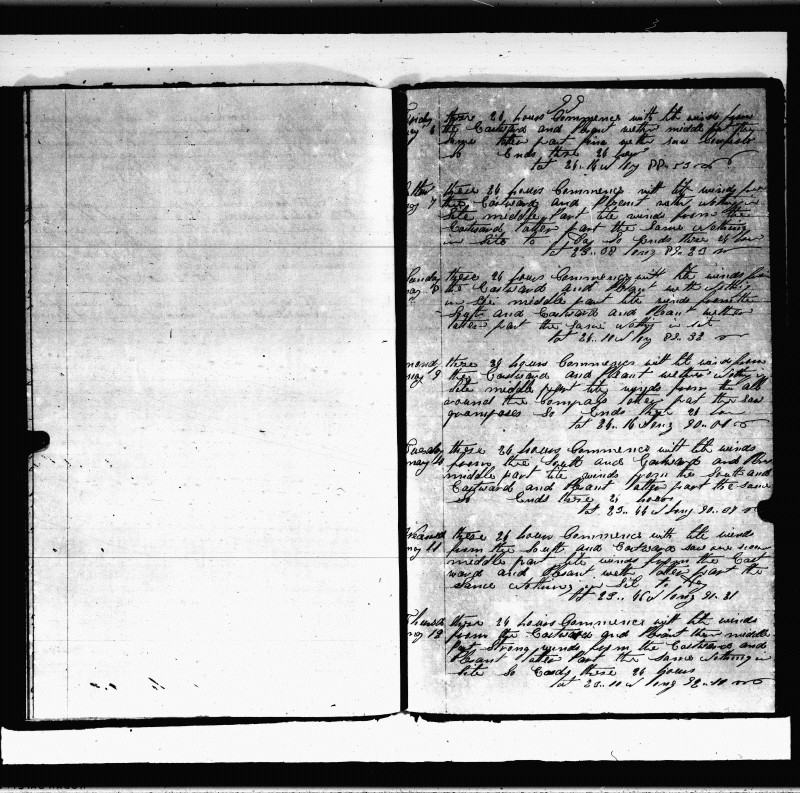 these 24 hours Commence with lite winds from
the Eastward and Plesant wether middle part
Some latter part fine wether saw
So Ends these 24 hour
Lat 24..16 N long 88..53
these 24 hours Commence with lite winds from
the Eastward and Plesant wether nothing in
Site middle Part lite winds from the
Eastward latter part the Same nothing
in Site to Day So Ends these 24 hour
Lat 23..08 long 89..23
Sunday these 24 hours Commence with lite winds from
may 8 the Eastward and Plesant with nothing
in Site middle part lite winds from the
and Eastward and Plesant wether
latter part the Same nothing in sit
Lat 24..10 N long 89..38
mond these 24 hours Commences with lite winds from
may 9 the Eastward and Plesant wether nothing in
Site middle part lite winds from the all
around the Compass latter part the saw
grampases So Ends these 24 hour
Lat 24..16 long 90..01
Tuesday these 24 hours Commence with lite winds
may 10 from the South and Eastward and
middle part lite winds from the South and
Eastward and Plesant latter part the same
So Ends these 24 hours
Lat 23..44 N long 90..08
these 24 hours Commence with lite winds
may 11 from the South and Eastward saw
middle part lite winds from the East
ward and Plesant with latter part the
Same nothing in Sit to Day
Lat 23..46 N long 91..21
Thursd these 24 hours Commence with lite winds
may 12 from the Eastward and Plesant then middle
Part Strong winds from the Eastward and
Plesant latter Part the Same nothing in
Site So Ends these 24 hours
Lat 23..10 N long 92..10